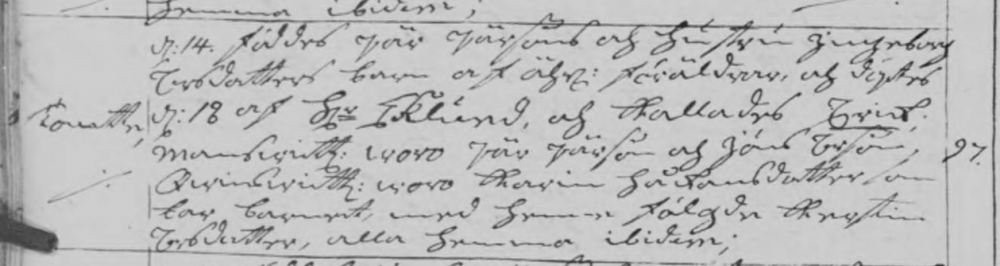 hemma ibidem;
d: 14. föddes Pär Pärsons och hustru Ingeborg
Persdatters barn af äkt: föräldrar, och döptes
d: 18 af Hr Eklund, och kallades
Manswittn: woro Pär Pärson och Jöns Person,
Qwinswittn: woro Karin Håkansdatter som
bar barnet, med henne följde Kerstin
Persdatter, alla hemma ibidem;
97.